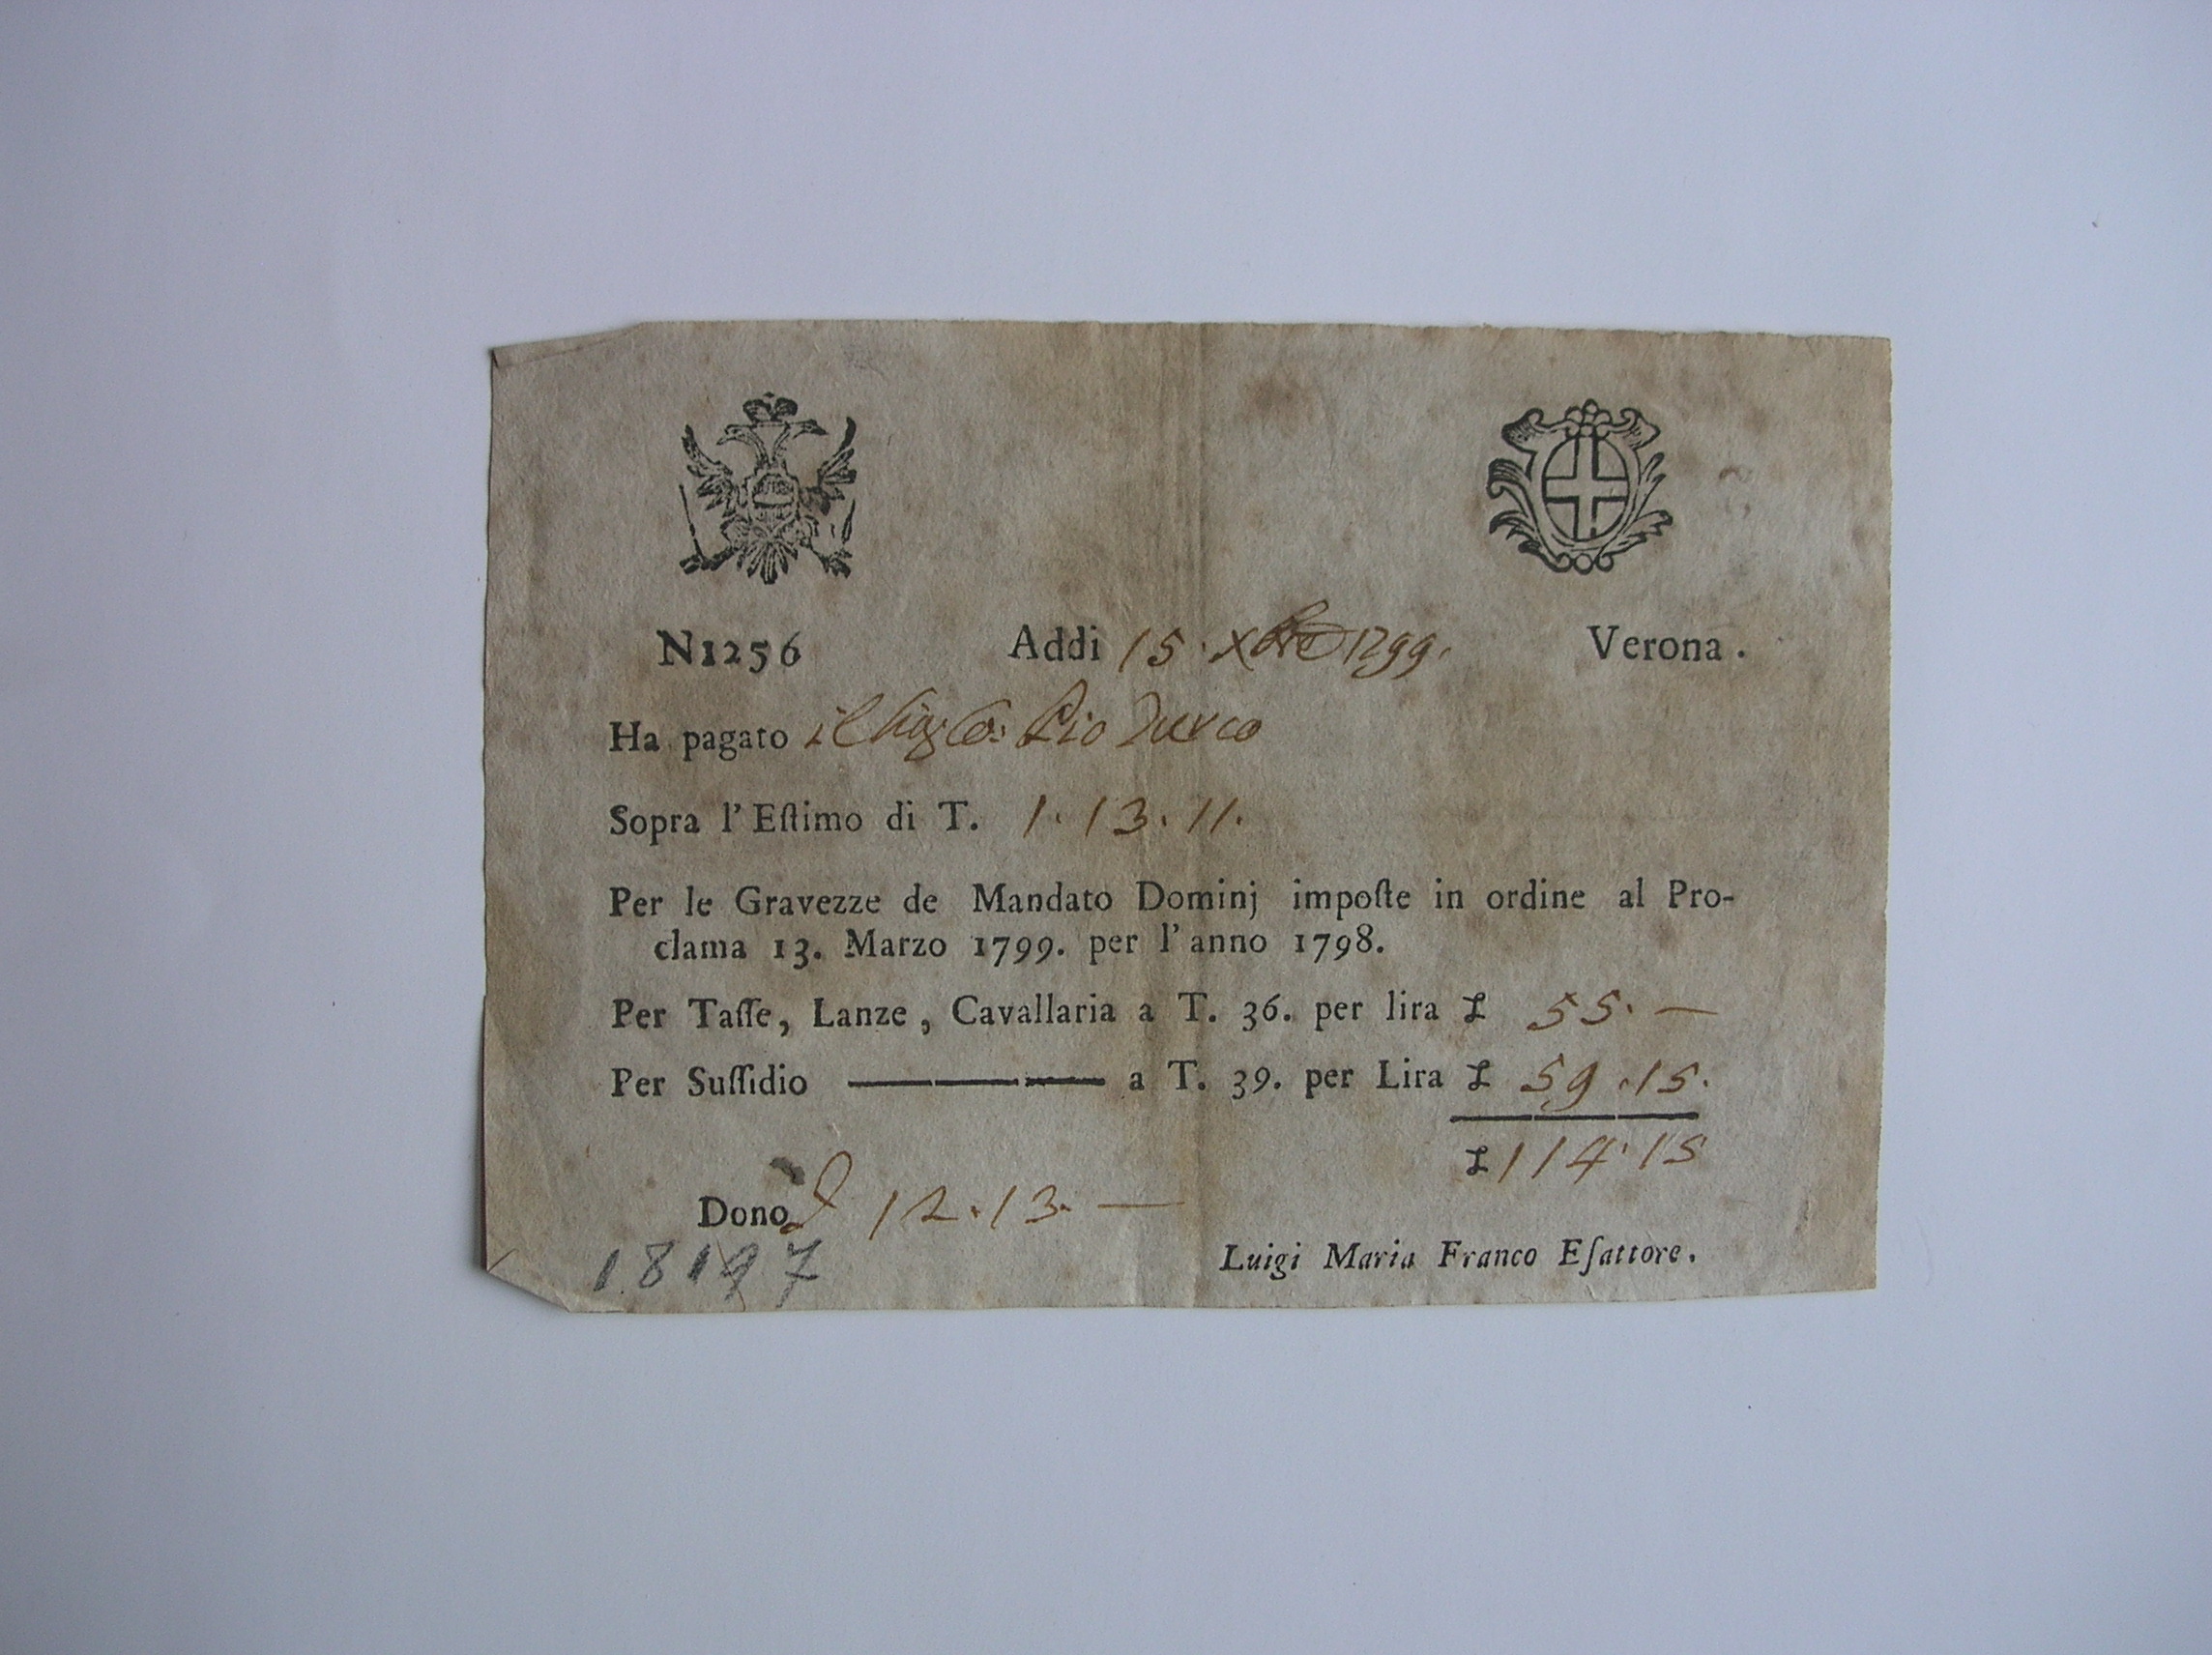 N1256 Addi 15. Xbre 1799. Verona.
Ha pagato il Sig: Co: Pio Turco
Sopra l'Eſtimo di T. 1. 13. 11.
Per le Gravezze de Mandato Dominj impoſte in ordine al Pro-
clama 13. Marzo 1799. per l'anno 1798.
Per Taſſe, Lanze, Cavallaria a T. 36. per lira £ 55. —
Per Suſſidio ——— a T. 39. per Lira £ 59. 15.
£ 114. 15
Dono 12. 13. —
18197
Luigi Maria Franco Eſattore.